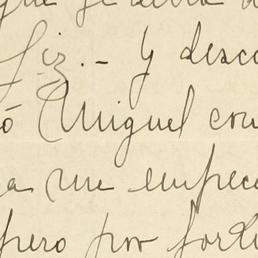 que
liz.- y desco
ó Miguel con
a me empec
pero por fort